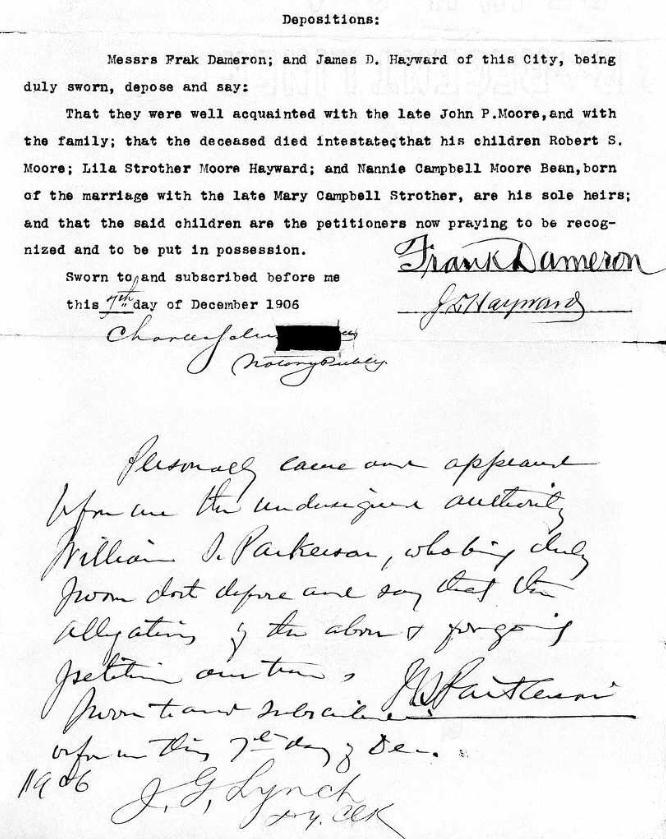 Depositions:
Messrs Frak Dameron; and James D. Hayward of this City, being
duly sworn, depose and say:
That they were well acquainted with the late John P.Moore,and with
the family; that the deceased died intestate;that his children Robert S.
Moore; Lila Strother Moore Hayward; and Nannie Campbell Moore Bean,born
of the marriage with the late Mary Campbell Strother, are his sole heirs;
and that the said children are the petitioners now praying to be recog-
nized and to be put in possession.
Frank Dameron
Sworn to and subscribed before me
this 7th day of December 1906
J D Hayward
Notary Public
Personally came and appeared
before me the undersigned authority
William S. Parkerson, who being duly
sworn doth depose and say that the
allegations of the above & foregoing
petition are true
Sworn to and subscribed
before me this 7th day of Dec.
1906
J. G. Lynch
Dy. Clk